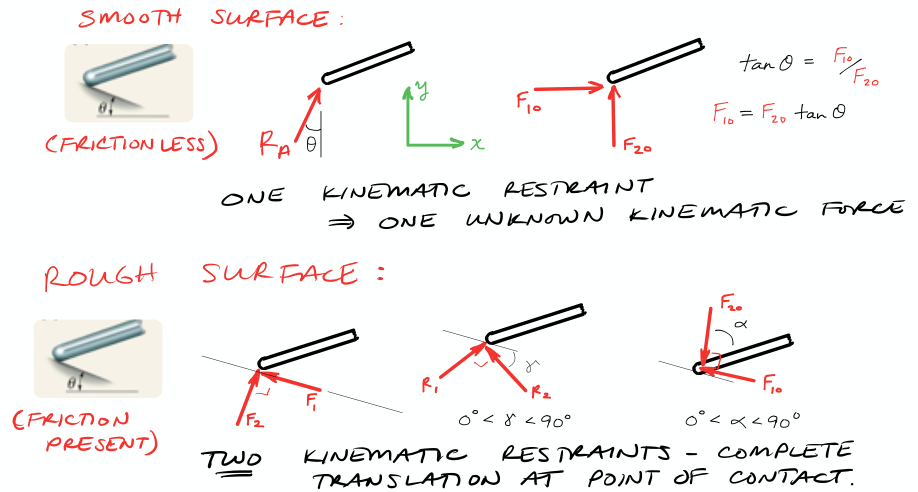 SMOOTH SURFACE:
θ
(FRICTIONLESS)
R_A
θ
y
x
F₁₀
F₂₀
tan θ = F₁₀/F₂₀
F₁₀ = F₂₀ tan θ
ONE KINEMATIC RESTRAINT
⇒ ONE UNKNOWN KINEMATIC FORCE
ROUGH SURFACE:
θ
(FRICTION
PRESENT)
F₂
F₁
R₁
R₂
γ
0° < γ < 90°
F₂₀
α
F₁₀
0° < α < 90°
TWO KINEMATIC RESTRAINTS – COMPLETE
TRANSLATION AT POINT OF CONTACT.